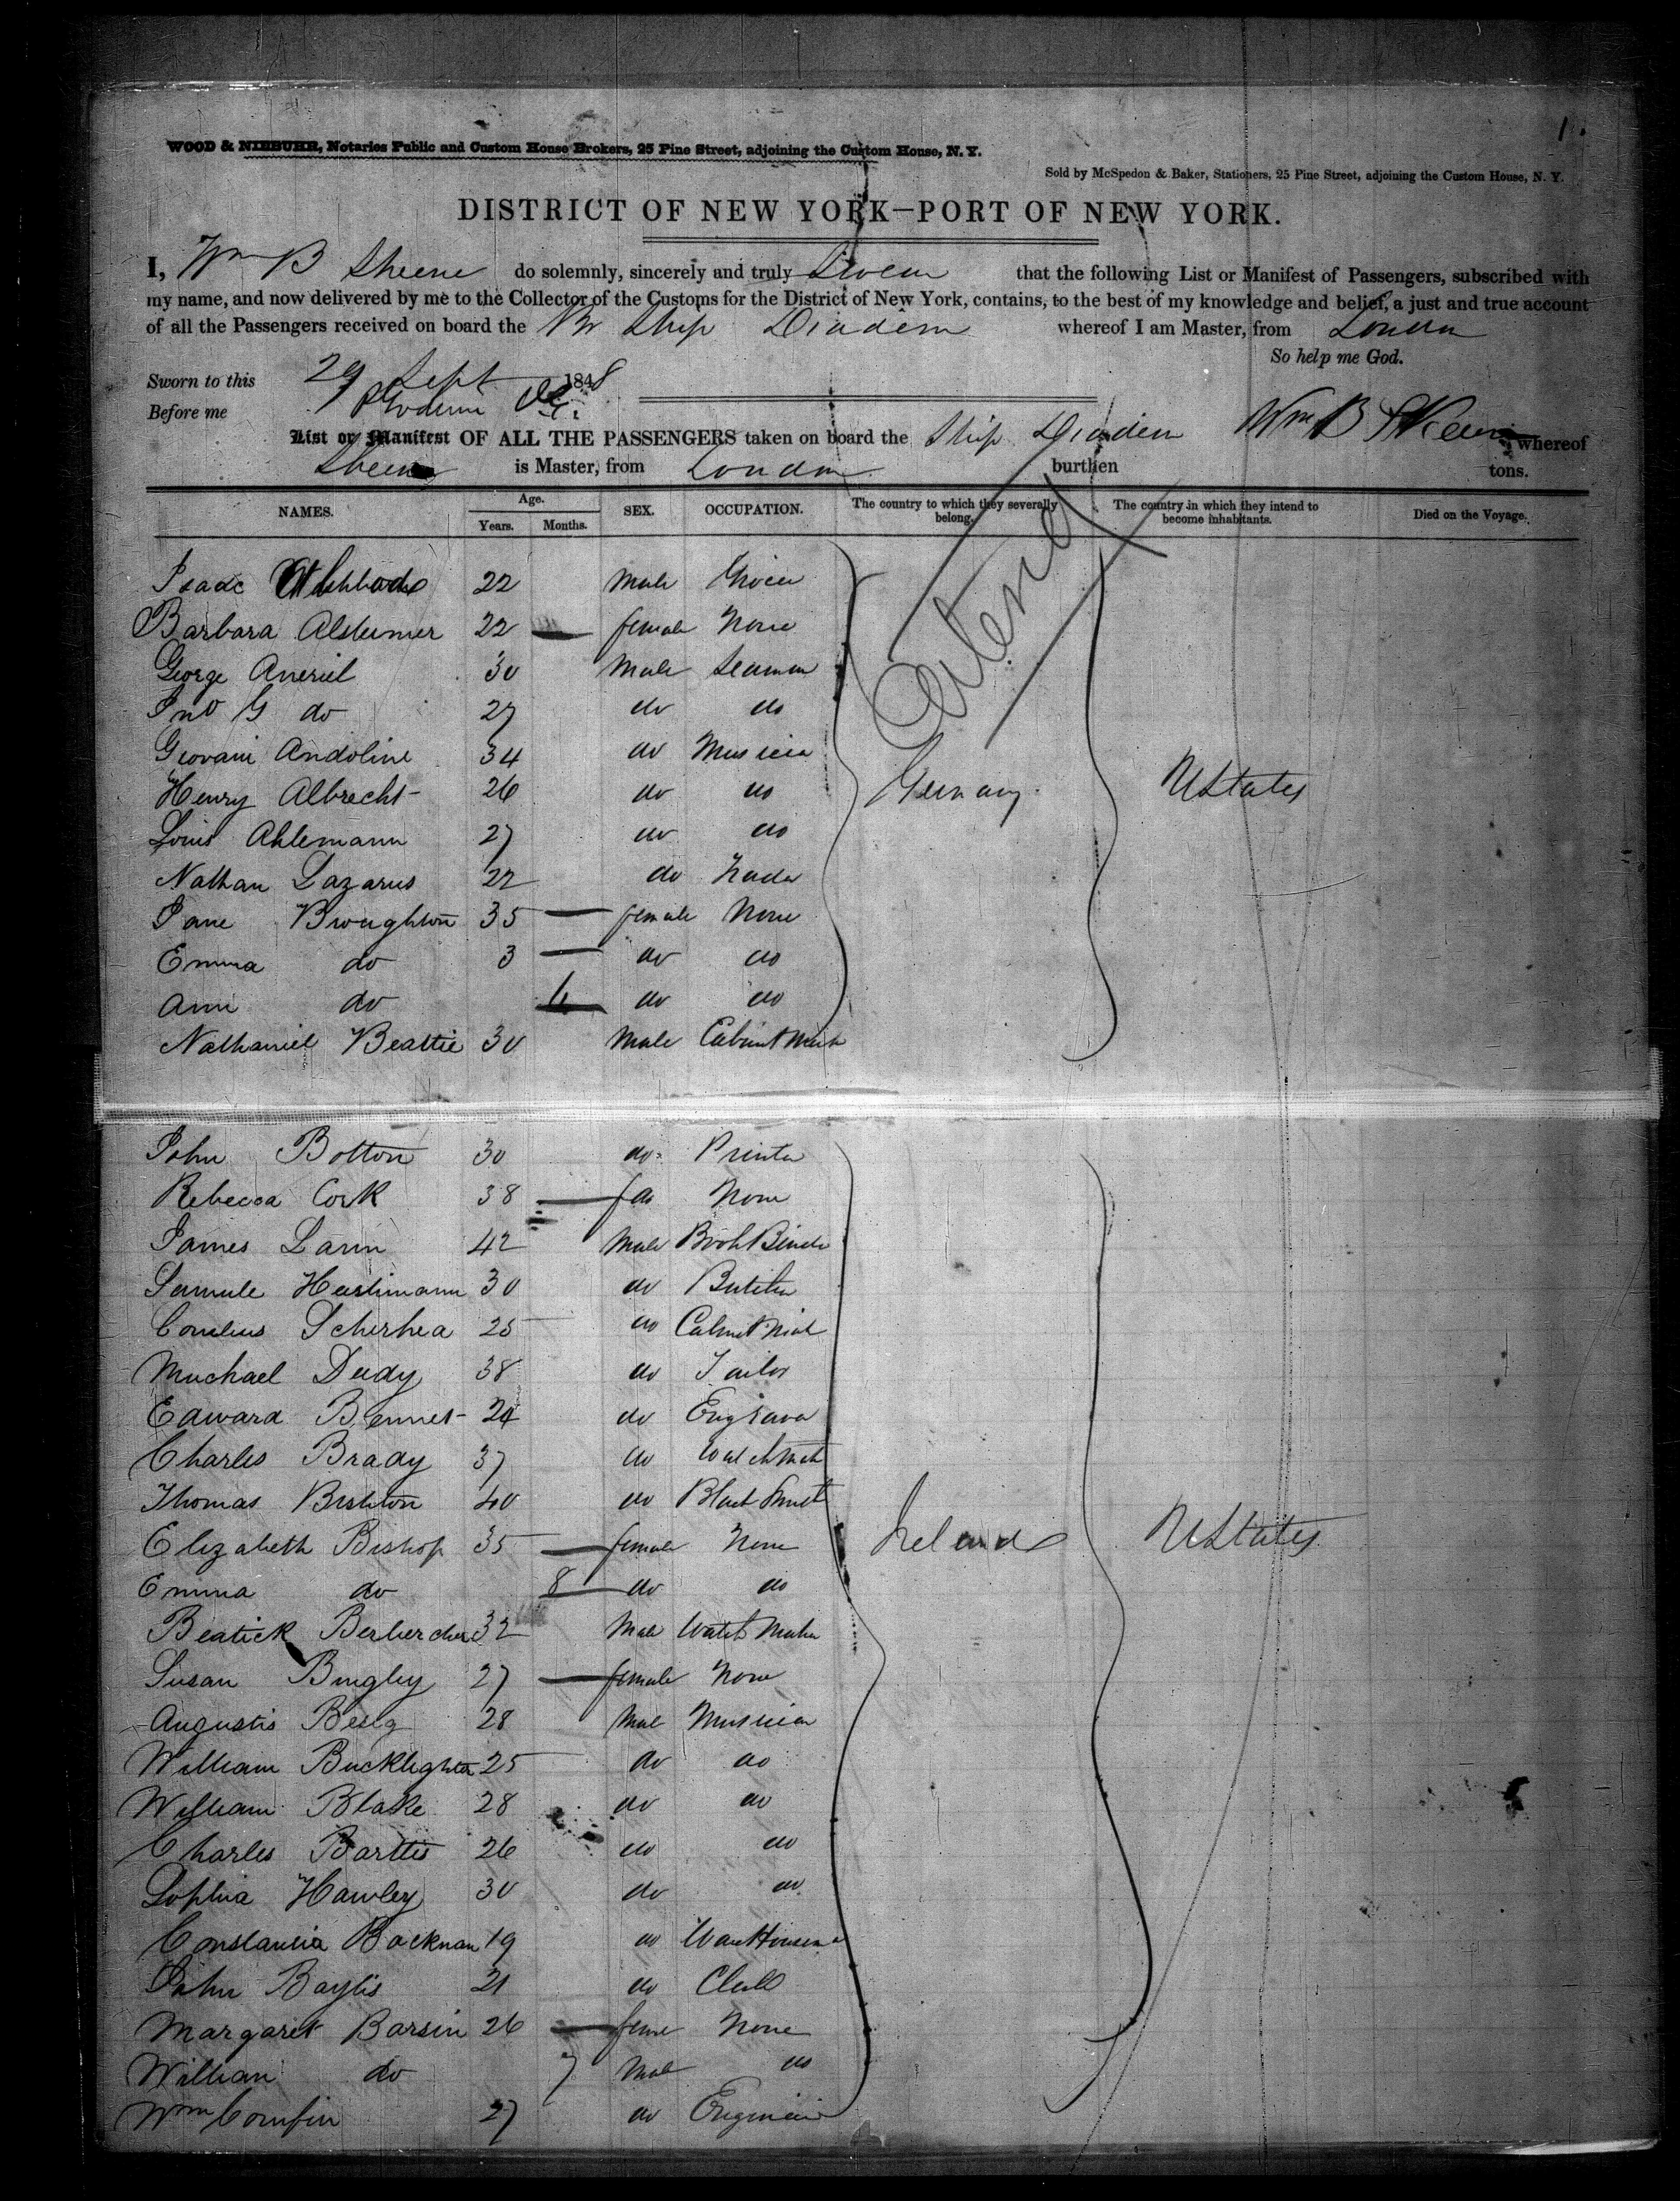 1.
WOOD & NIEBUHR, Notaries Public and Custom House Brokers, 25 Pine Street, adjoining the Custom House, N. Y.
Sold by McSpedon & Baker, Stationers, 25 Pine Street, adjoining the Custom House, N. Y.
DISTRICT OF NEW YORK—PORT OF NEW YORK.
I, Wm B Skeene do solemnly, sincerely and truly Swear that the following List or Manifest of Passengers, subscribed with
my name, and now delivered by me to the Collector of the Customs for the District of New York, contains, to the best of my knowledge and belief, a just and true account
of all the Passengers received on board the Br Ship Diadem whereof I am Master, from London
So help me God.
Sworn to this 29 Sept 1848
Before me
Wm B Skeene
List or Manifest OF ALL THE PASSENGERS taken on board the Ship Diadem whereof
Skeene is Master, from London burthen tons.
NAMES. Age. Years. Months. SEX. OCCUPATION. The country to which they severally belong. The country in which they intend to become inhabitants. Died on the Voyage.
Entered
Isaac 22 Male Grocer
Barbara Alsteimer 22 female None
George Aneriel 30 Male Seaman
Jno G do 27 do do
Giovani Andoline 34 do Musician
Henry Albrecht 26 do do Germany UStates
Louis Ahlemann 27 do do
Nathan Lazarus 22 do Trader
Jane Broughton 35 female None
Emma do 3 do do
Ann do do do
Nathaniel Beattie 30 Male Cabinet Mak
John Botton 30 do Printer
Rebecca Cork 38 fe None
James Lann 42 Male Book Binder
Samule 30 do Butcher
Cornelius Scherhea 25 do Cabinet Mak
Muchael Dudy 38 do Tailor
Edward Bennet 24 do Engraver
Charles Brady 37 do Watch Mak
Thomas Bishton 40 do Black Smit
Elizabeth Bishop 35 female None Ireland UStates
Emma do 8 do do
Beatick 32 Male Watch Maker
Susan Bingley 27 female None
Augustis Beslg 28 Male Musician
William Bucklighton 25 do do
William Blake 28 do do
Charles Barttis 26 do do
Sophia Hawley 30 do do
Constancia Backnan 19 do
John Baylis 21 do Clerk
Margaret Barsin 26 feme None
William do 7 Male do
Wm Cornfin 27 do Engineer